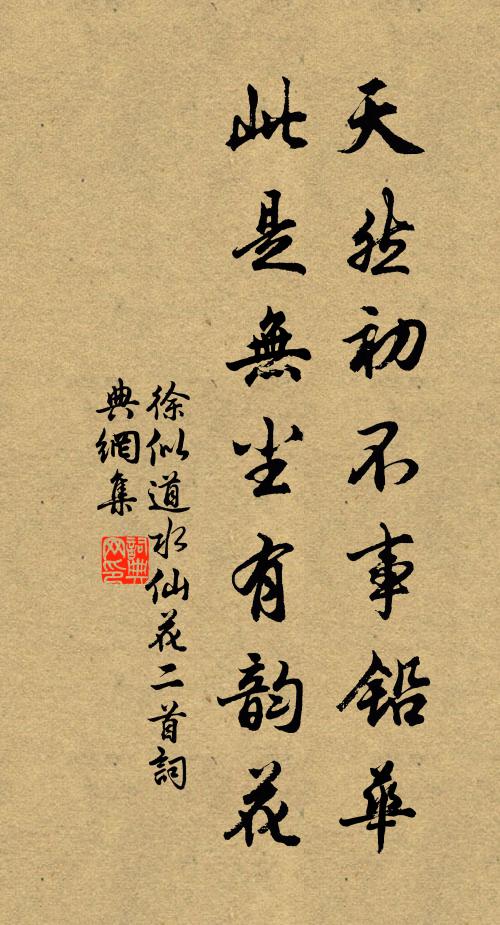 天然初不事鉛華
此是無塵有韵花
徐似道水仙花二首詞
典網集
詞典網印